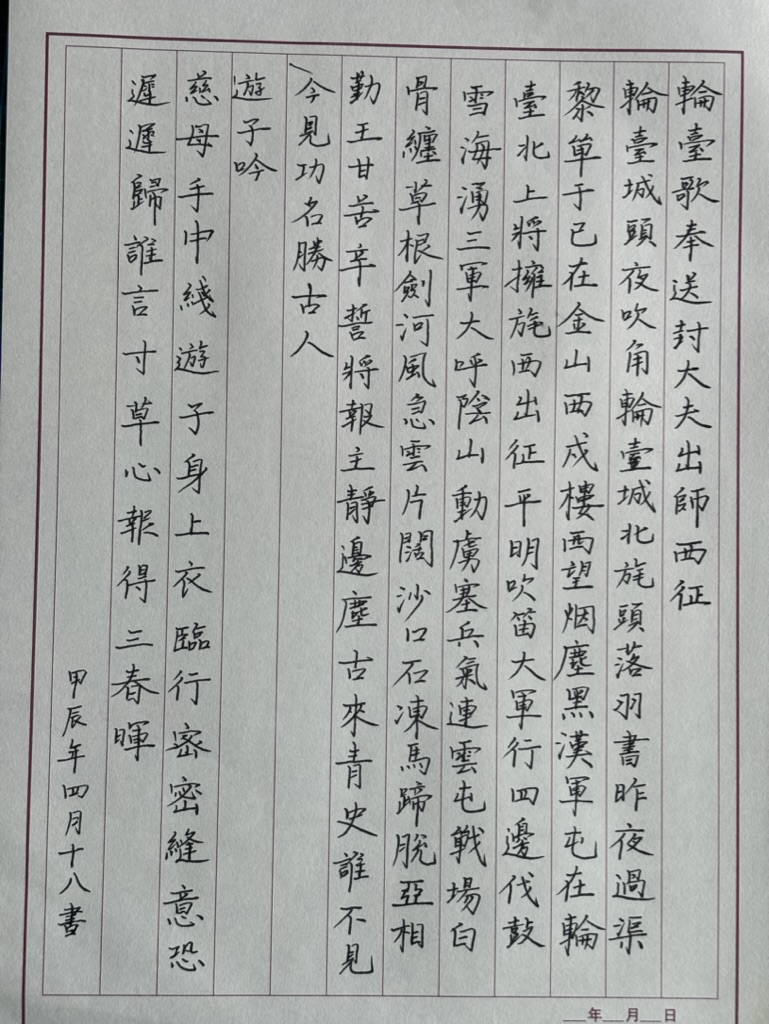 輪臺歌奉送封大夫出師西征
輪臺城頭夜吹角輪臺城北旄頭落羽書昨夜過渠
黎單于已在金山西戍樓西望烟塵黑漢軍屯在輪
臺北上將擁旄西出征平明吹笛大軍行四邊伐鼓
雪海湧三軍大呼陰山動虜塞兵氣連雲屯戰場白
骨纏草根劍河風急雲片闊沙口石凍馬蹄脫亞相
勤王甘苦辛誓將報主靜邊塵古來青史誰不見
今見功名勝古人
遊子吟
慈母手中綫遊子身上衣臨行密密縫意恐
遲遲歸誰言寸草心報得三春暉
甲辰年四月十八書
年 月 日